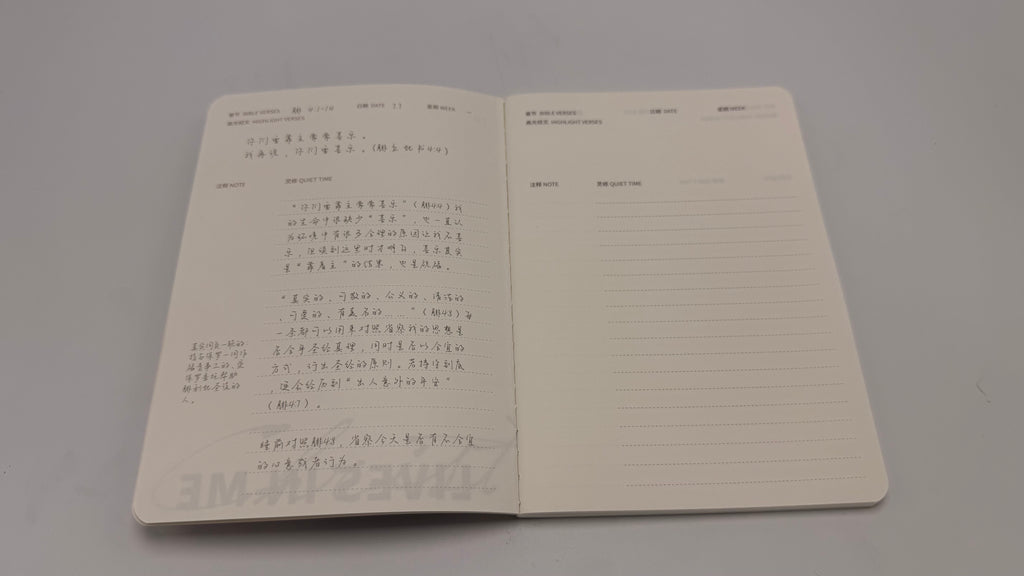 章节 BIBLE VERSES 腓 4:1-14 日期 DATE 3.3 星期 WEEK
高光经文 HIGHLIGHT VERSES
你们要靠主常常喜乐。
我再说,你们要喜乐。(腓立比书4:4)
注释 NOTE 灵修 QUIET TIME
“你们要靠主常常喜乐”(腓4:4)我
的生命中很缺少“喜乐”,也一直认
为环境中有很多合理的原因让我不喜
乐,但读到这里时才明白,喜乐其实
是“靠着主”的结果,也是祝福。
“真实的、可敬的、公义的、清洁的
、可爱的、有美名的……”(腓4:8)每
一条都可以用来对照省察我的思想是
否合乎圣经真理,同时是否以合宜的
方式,行出圣经的原则。若持守到底
,便会经历到“出人意外的平安”
(腓4:7)。
真实同负一轭的
指与保罗一同作
福音事工的,受
保罗委托帮助
腓利比圣徒的
人。
睡前对照腓4:8,省察今天是否有不合宜
的心意或者行为。
LIVES IN ME
章节 BIBLE VERSES 日期 DATE 星期 WEEK
高光经文 HIGHLIGHT VERSES
注释 NOTE 灵修 QUIET TIME